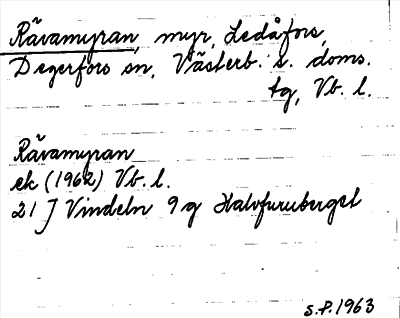 Rävamyran, myr, Ledåfors,
Degerfors sn, Västerb. s. doms.
tg, Vb. l.
Rävamyran
ek (1962) Vb. l.
21 J Vindeln 9 g Halvfuruberget
S.P. 1963